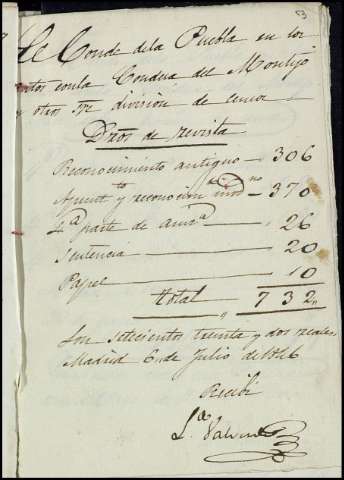 53
El Conde de la Puebla en los
autos con la Condesa del Montijo
y otros sre división de censos
Dros de revista
Reconocimiento antiguo — 306
Apuntto y reconocimto modno — 370
4ª parte de 26
Sentencia — 20
Papel — 10
total — 732
Son setecientos treinta y dos reales
Madrid 6 de Julio de 1846
Recibí
Ldo